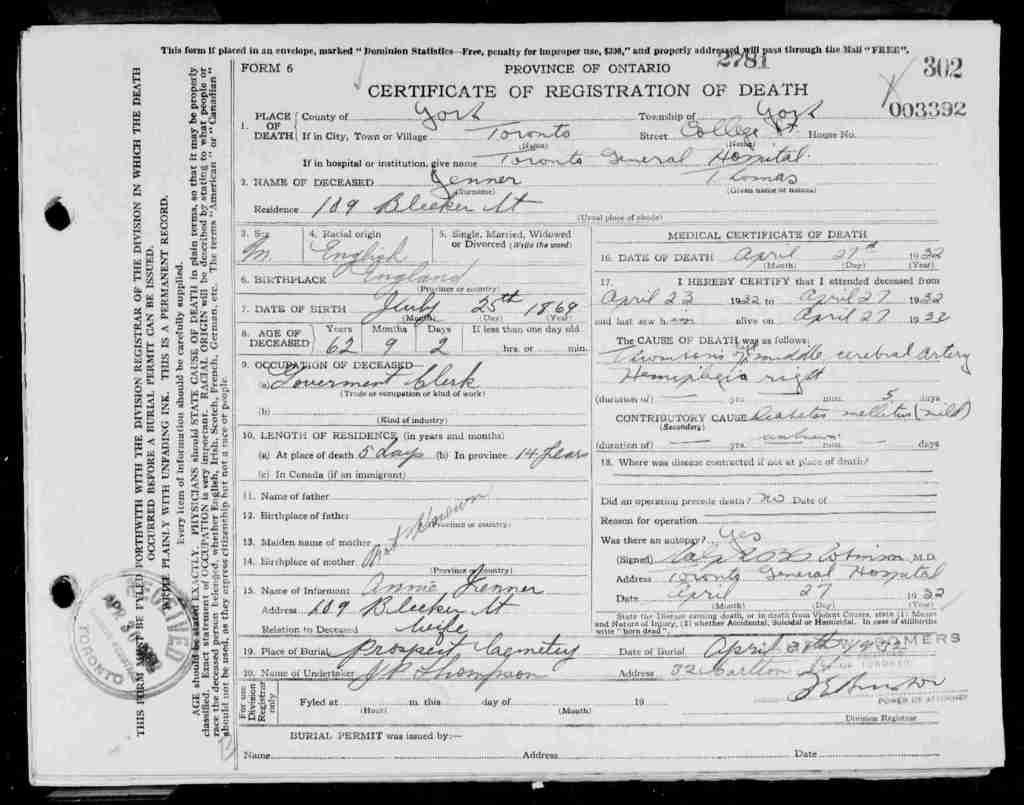 This form if placed in an envelope, marked "Dominion Statistics—Free, penalty for improper use, $300," and properly addressed will pass through the Mail "FREE".
FORM 6 PROVINCE OF ONTARIO 2781 302
CERTIFICATE OF REGISTRATION OF DEATH 003392
1. PLACE OF DEATH County of York Township of York
If in City, Town or Village Toronto (Name) Street College St. House No.
If in hospital or institution, give name Toronto General Hospital.
2. NAME OF DECEASED Jenner (Surname) Thomas (Given name or names)
Residence 109 Bleeker St (Usual place of abode)
3. Sex M. 4. Racial origin English 5. Single, Married, Widowed or Divorced (Write the word)
6. BIRTHPLACE England (Province or country)
7. DATE OF BIRTH July (Month) 25th (Day) 1869 (Year)
8. AGE OF DECEASED Years 62 Months 9 Days 2 If less than one day old hrs. or min.
9. OCCUPATION OF DECEASED—
(a) Goverment Clerk
(Trade or occupation or kind of work)
(b)
(Kind of industry)
10. LENGTH OF RESIDENCE (in years and months)
(a) At place of death 5 days (b) In province 14 years
(c) In Canada (if an immigrant)
11. Name of father
12. Birthplace of father (Province or country)
13. Maiden name of mother Not Known
14. Birthplace of mother (Province or country)
15. Name of Informant Annie Jenner
Address 109 Bleeker St
Relation to Deceased Wife
MEDICAL CERTIFICATE OF DEATH
16. DATE OF DEATH April (Month) 27th (Day) 1932 (Year)
17. I HEREBY CERTIFY that I attended deceased from
April 23 1932 to April 27 1932
and last saw h alive on April 27 1932
The CAUSE OF DEATH was as follows:
Thrombosis of middle cerebral artery
Hemiplegia right
(duration of) yrs. mos. 5 days
CONTRIBUTORY CAUSE Diabetes mellitus (mild)
(Secondary)
(duration of) yrs. unknown mos. days
18. Where was disease contracted if not at place of death?
Did an operation precede death? No Date of
Reason for operation
Was there an autopsy? Yes
(Signed) Robinson, M.D.
Address Toronto General Hospital
Date April (Month) 27 (Day) 1932 (Year)
State the Disease causing death, or in death from Violent Causes, state (1) Means and Nature of Injury, (2) whether Accidental, Suicidal or Homicidal. In case of stillbirths write "born dead".
19. Place of Burial Prospect Cemetery Date of Burial April 30th 1932
20. Name of Undertaker Thompson Address 32 Carlton
POWER OF ATTORNEY
For use Division Registrar only
Fyled at (Hour) m. this day of (Month) 19
Division Registrar
BURIAL PERMIT was issued by:—
Name Address Date
THIS FORM MUST BE FYLED FORTHWITH WITH THE DIVISION REGISTRAR OF THE DIVISION IN WHICH THE DEATH
OCCURRED BEFORE A BURIAL PERMIT CAN BE ISSUED.
WRITE PLAINLY WITH UNFADING INK. THIS IS A PERMANENT RECORD.
Every item of information should be carefully supplied.
AGE should be stated EXACTLY. PHYSICIANS should STATE CAUSE OF DEATH in plain terms, so that it may be properly
classified. Exact statement of OCCUPATION is very important. RACIAL ORIGIN will be described by stating to what people or
race the deceased person belonged, whether English, Irish, Scotch, French, German, etc. The terms "American" or "Canadian"
should not be used, as they express citizenship but not a race or people.
RECEIVED
APR
TORONTO